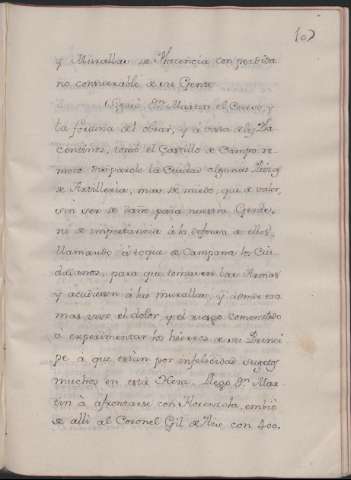 107
y Murallas de Placencia con perdida
no considerable de su Gente
Siguió Dn. Martin el Curso, y
la fortuna del obrar, y á vista de los Pla
centinos, tomó el Castillo de Campo re
moto disparole la Ciudad algunas Piezas
de Artilleria, mas de miedo, que de valor,
sin ser de daño para nuestra Gente,
ni de importancia á la defensa de ellos,
llamando á toque de Campana los Ciu
dadanos, para que tomasen las Armas
y acudiesen á las murallas, y donde era
mas vivo el dolor, y el riesgo comenzando
á experimentar los hierros de su Princi
pe á que están por infelicidad sugetos
muchos en esta Hera. Llegó Dn. Mar
tin á afrontarse con Florenzola, embió
de alli al Coronel Gil de Haie con 400.